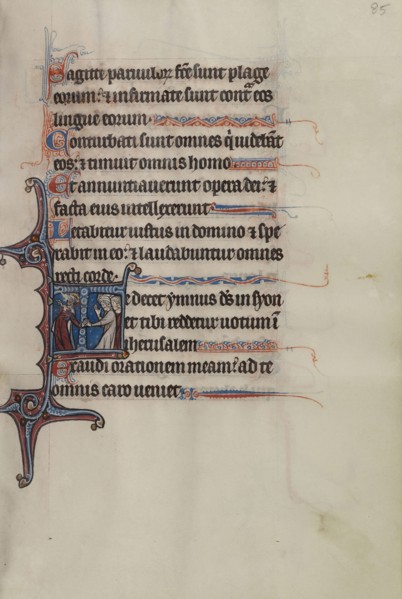 85
Sagitte parvulor̄ fc̄e sunt plage
eorum: ⁊ infirmate sunt cont̄ eos
lingue eorum.
Conturbati sunt omnes q̄ videbāt
eos: ⁊ timuit omnis homo
Et annuntiaverunt opera dei: ⁊
facta eius intellexerunt
Letabitur iustus in domino ⁊ spe
rabit in eo: ⁊ laudabuntur omnes
recti corde.
Te decet ẏmnus ds̄ in syon
et tibi reddetur votum ī
iherusalem
Exaudi orationem meam: ad te
omnis caro veniet